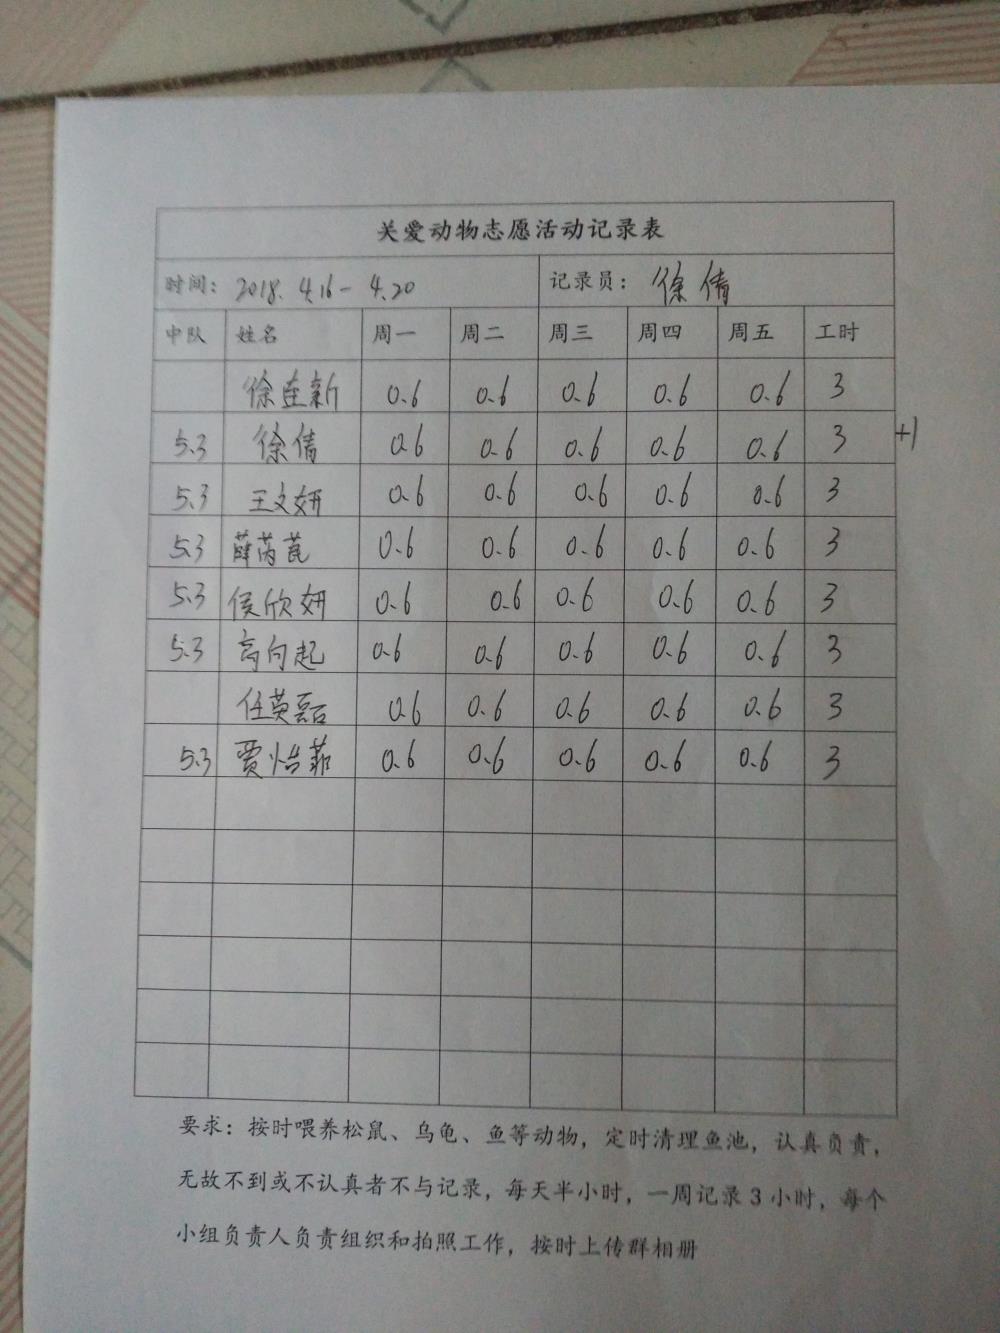 关爱动物志愿活动记录表
时间：2018.4.16-4.20 记录员：徐倩
中队 姓名 周一 周二 周三 周四 周五 工时
徐连新 0.6 0.6 0.6 0.6 0.6 3
5.3 徐倩 0.6 0.6 0.6 0.6 0.6 3 +1
5.3 王文妍 0.6 0.6 0.6 0.6 0.6 3
5.3 薛芮菎 0.6 0.6 0.6 0.6 0.6 3
5.3 侯欣妍 0.6 0.6 0.6 0.6 0.6 3
5.3 高向起 0.6 0.6 0.6 0.6 0.6 3
任英磊 0.6 0.6 0.6 0.6 0.6 3
5.3 贾怡菲 0.6 0.6 0.6 0.6 0.6 3
要求：按时喂养松鼠、乌龟、鱼等动物，定时清理鱼池，认真负责，
无故不到或不认真者不与记录，每天半小时，一周记录3小时，每个
小组负责人负责组织和拍照工作，按时上传群相册